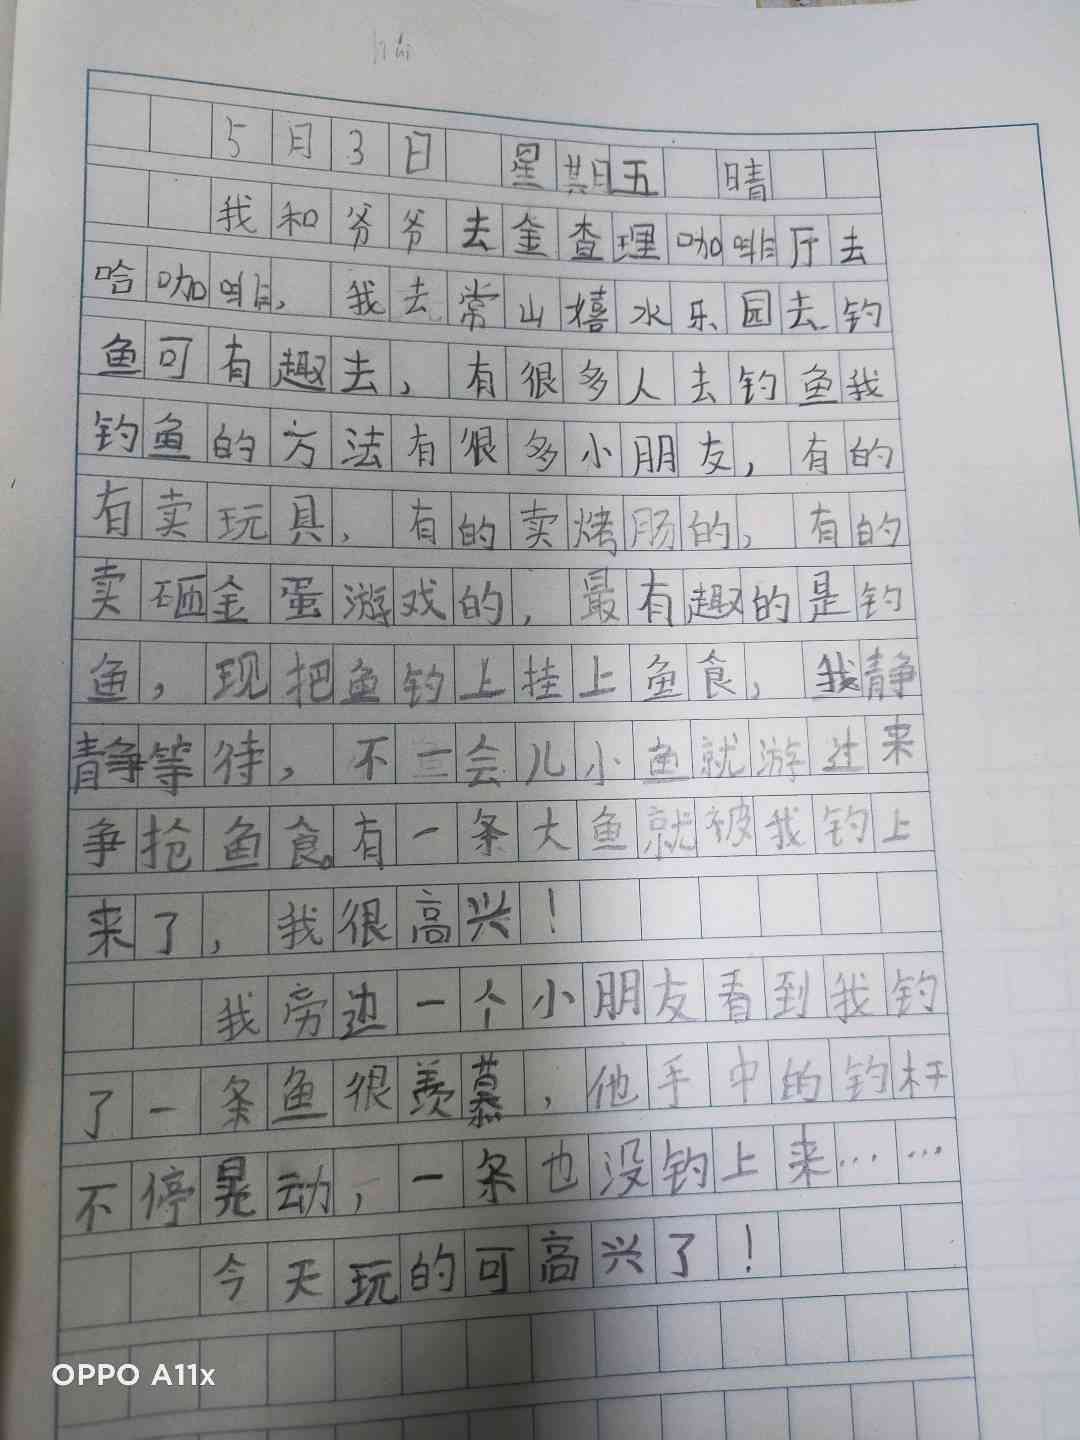 5月3日 星期五 晴
我和爷爷去金查理咖啡厅去
哈咖啡,我去常山橲水乐园去钓
鱼可有趣去,有很多人去钓鱼我
钓鱼的方法有很多小朋友,有的
有卖玩具,有的卖烤肠的,有的
卖砸金蛋游戏的,最有趣的是钓
鱼,现把鱼钓上挂上鱼食,我静
静等待,不一会儿小鱼就游过来
争抢鱼食。有一条大鱼就被我钓上
来了,我很高兴!
我旁边一个小朋友看到我钓
了一条鱼很羡慕,他手中的钓杆
不停晃动,一条也没钓上来……
今天玩的可高兴了!
OPPO A11x